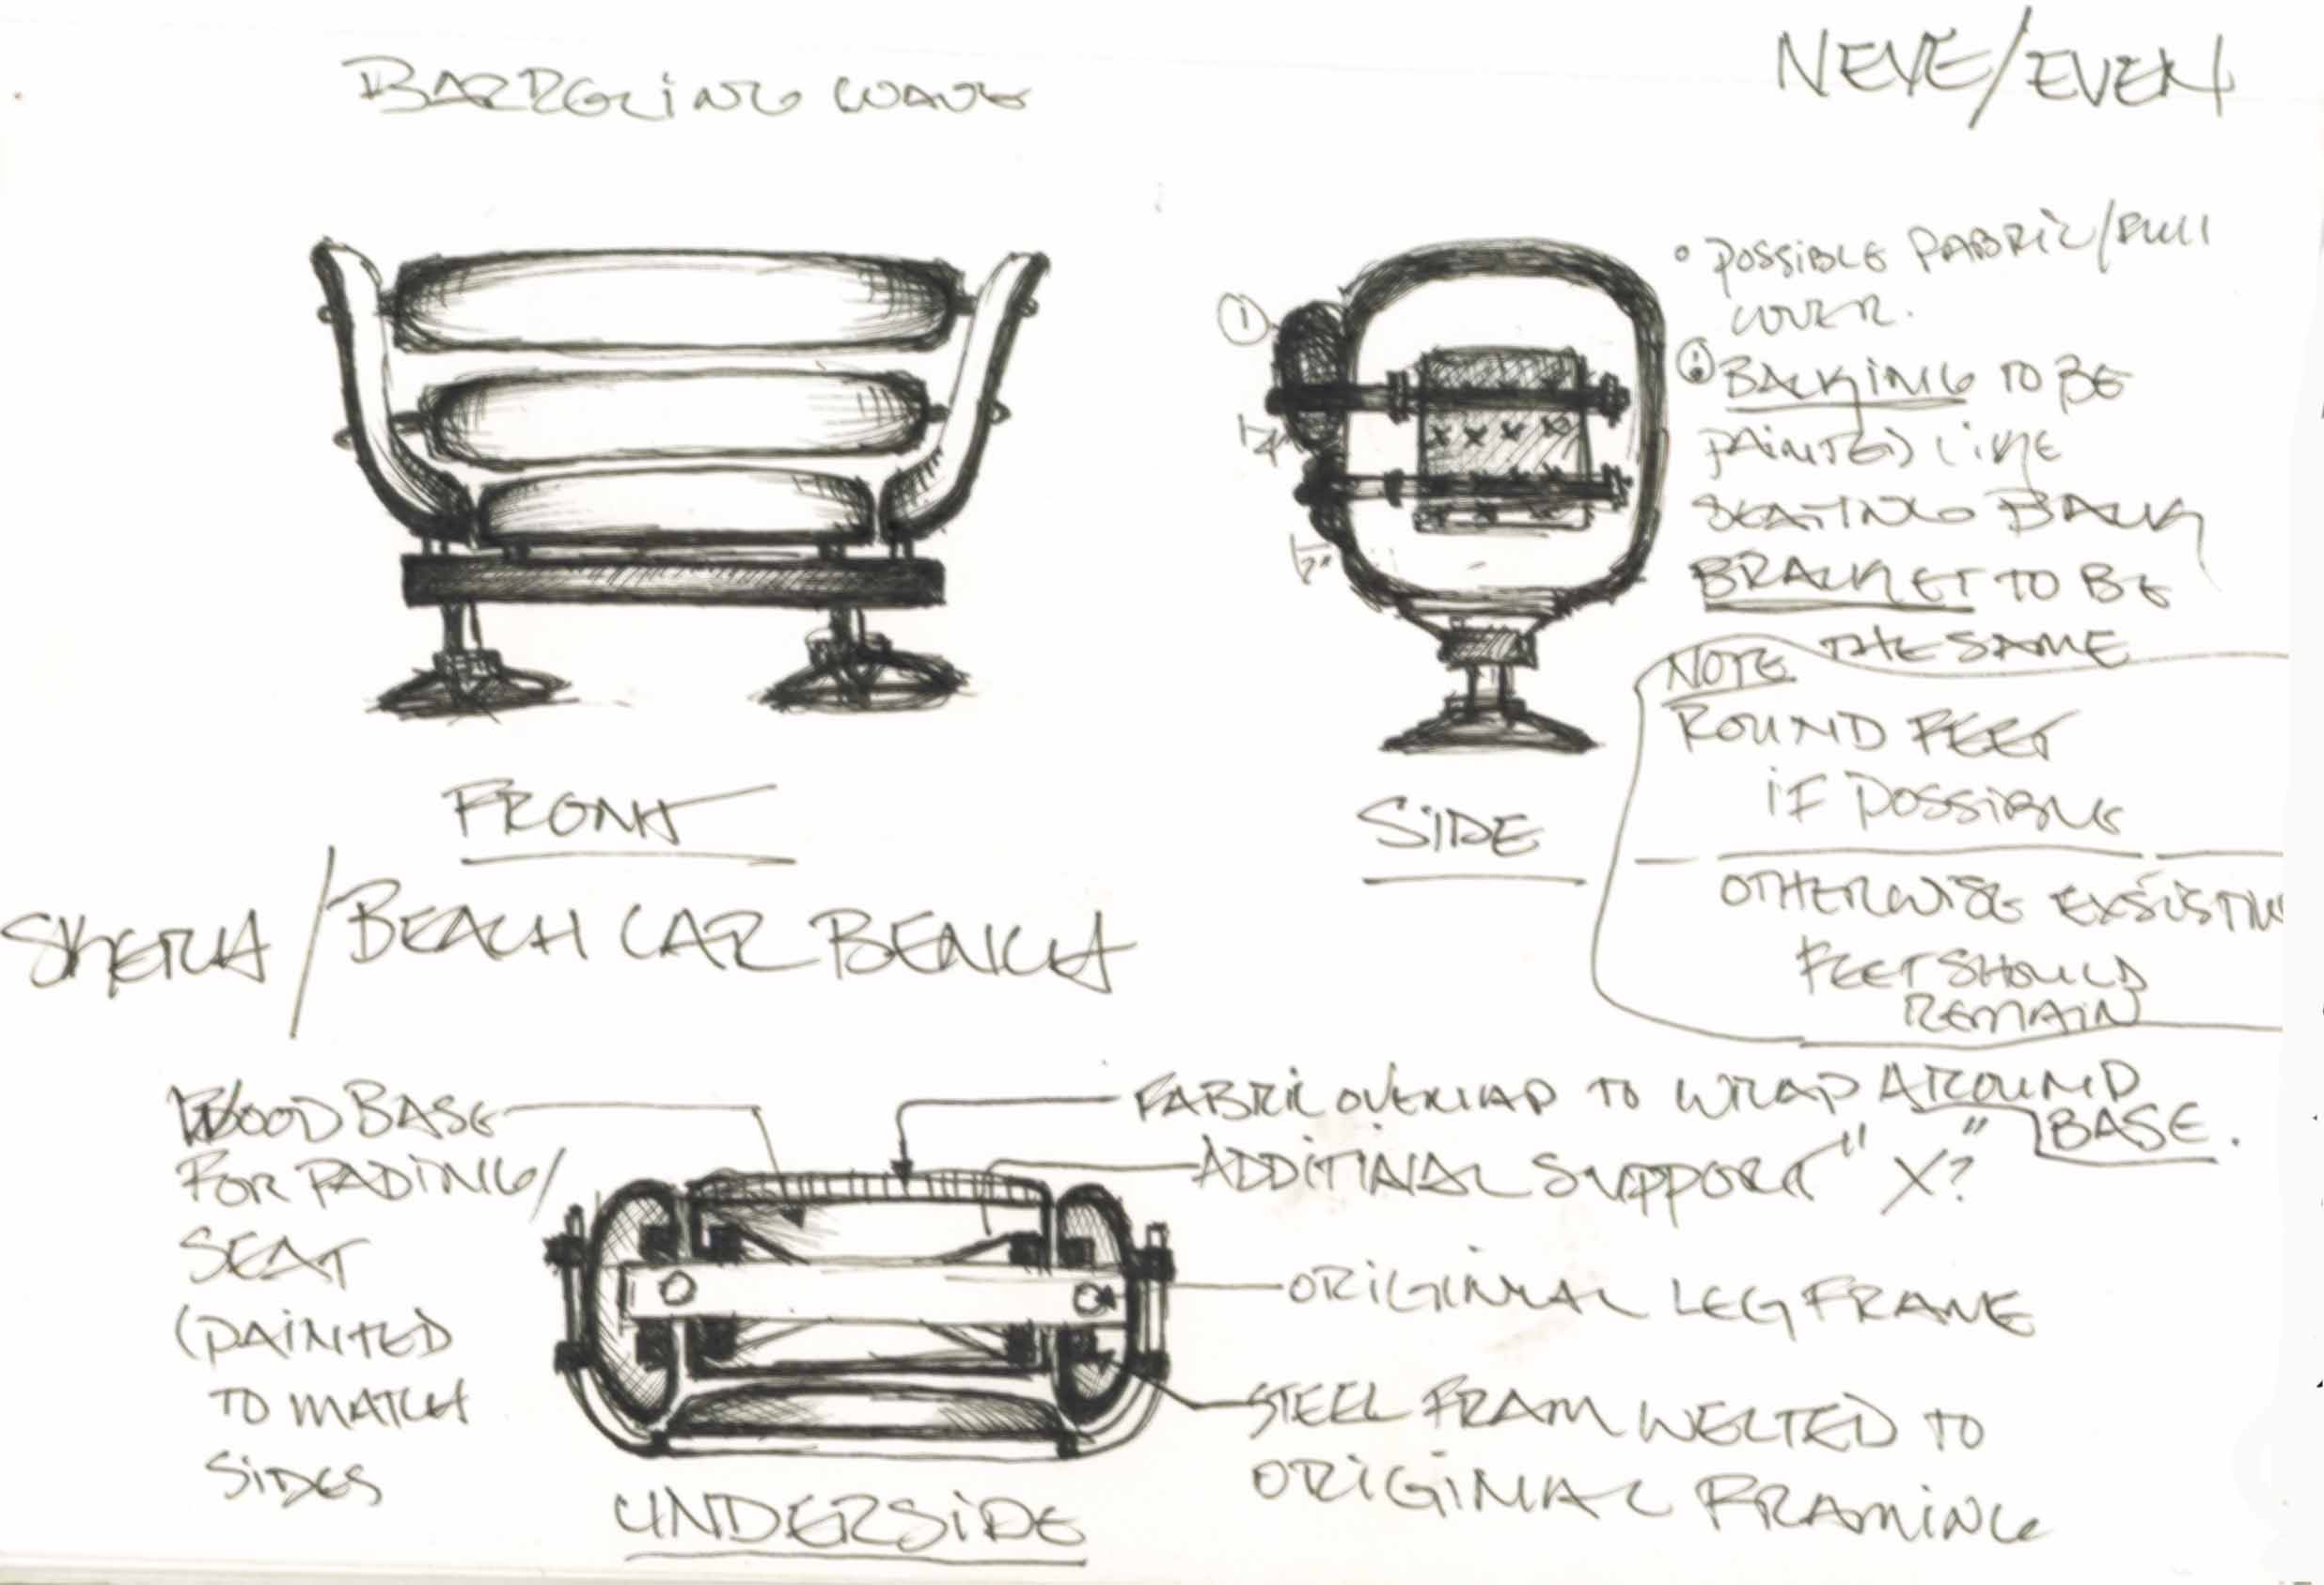 BARRELING WAVE
NEVE/EVEN
• POSSIBLE FABRIC/FULL
COVER.
① BACKING TO BE
PAINTED LIKE
SEATING BACK
BRACKET TO BE
THE SAME
①
1/4"
1/2"
NOTE
ROUND FEET
IF POSSIBLE
OTHERWISE EXSISTIN
FEET SHOULD
REMAIN
FRONT
SIDE
SKETCH/BEACH CAR BENCH
WOOD BASE
FOR PADING/
SEAT
(PAINTED
TO MATCH
SIDES
FABRIC OVERLAP TO WRAP AROUND
BASE.
ADDITINAL SUPPORT "X?"
ORIGINAL LEG FRAME
STEEL FRAM WELTED TO
ORIGINAL FRAMING
UNDERSIDE